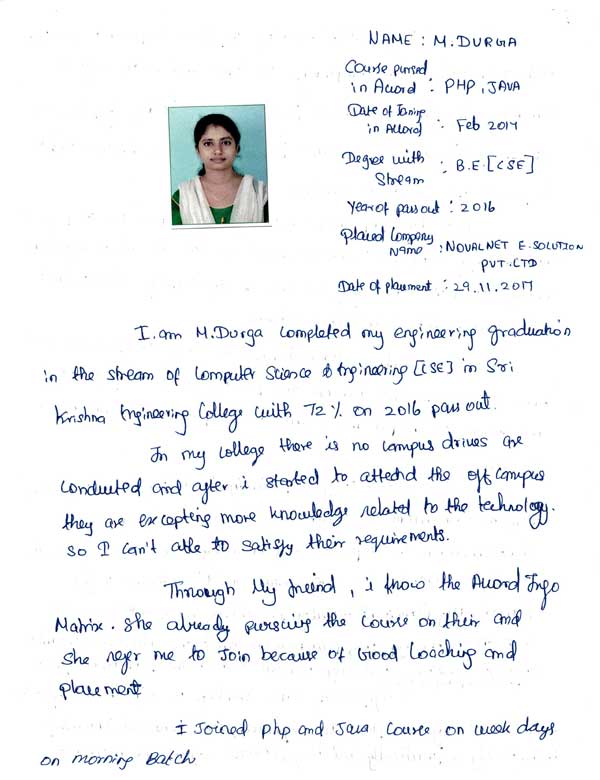 NAME : M.DURGA
Course pursed
in Accord : PHP, JAVA
Date of Joning
in Accord : Feb 2017
Degree with
Stream : B.E.[CSE]
Year of pass out : 2016
Placed Company
Name : NOVALNET E-SOLUTION
PVT. LTD
Date of placement : 29.11.2017
I am M.Durga completed my engineering graduation
in the stream of Computer Science & Engineering [CSE] in Sri
Krishna Engineering College with 72% on 2016 pass out.
In my college there is no campus drives are
conducted and after i started to attend the off campus
they are excepting more knowledge related to the technology.
so I can't able to satisfy their requirements.
Through My friend, i know the Accord Info
Matrix. She already pursuing the course on their and
She refer me to Join because of Good Coaching and
placement
I Joined php and Java Course on week days
on morning Batch